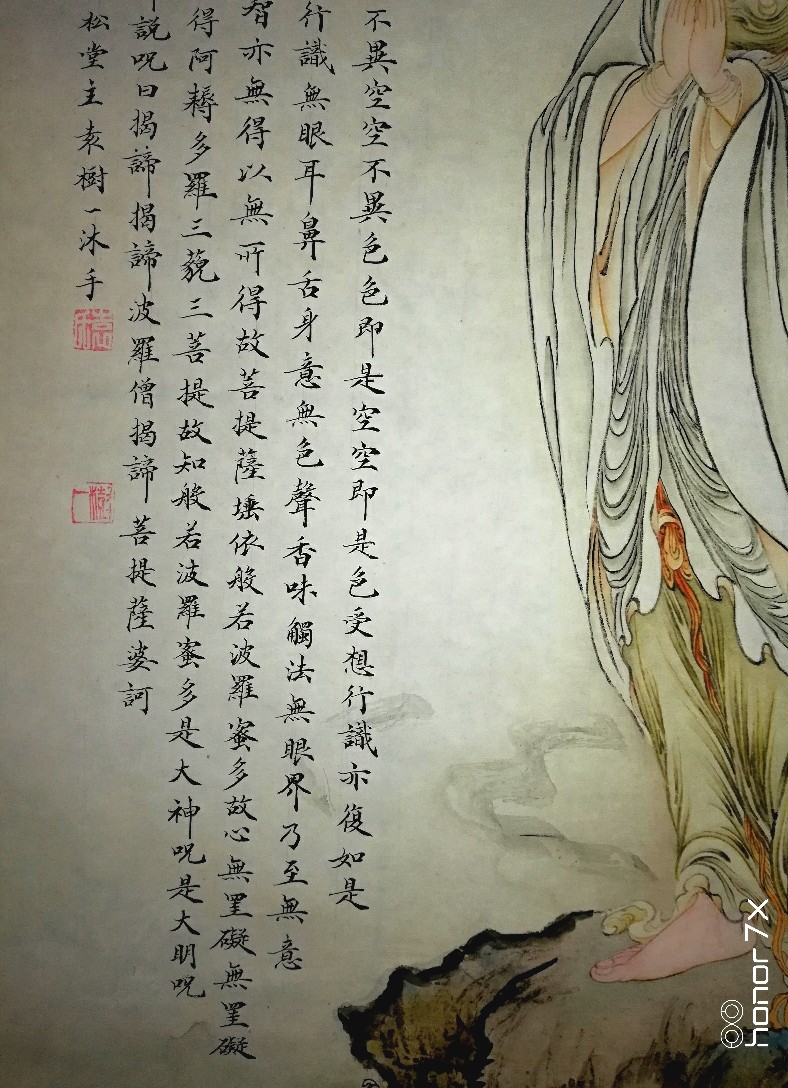 不異空空不異色色即是空空即是色受想行識亦復如是
行識無眼耳鼻舌身意無色聲香味觸法無眼界乃至無意
智亦無得以無所得故菩提薩埵依般若波羅蜜多故心無罣礙無罣礙
得阿耨多羅三藐三菩提故知般若波羅蜜多是大神呪是大明呪
說呪曰揭諦揭諦波羅僧揭諦菩提薩婆訶
松堂主袁樹一沐手
honor 7X